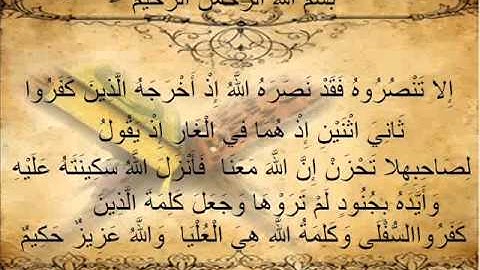 بسم الله الرحمن الرحيم
إِلا تَنْصُرُوهُ فَقَدْ نَصَرَهُ اللَّهُ إِذْ أَخْرَجَهُ الَّذِينَ كَفَرُوا
ثَانِيَ اثْنَيْنِ إِذْ هُمَا فِي الْغَارِ إِذْ يَقُولُ
لِصَاحِبِهِلا تَحْزَنْ إِنَّ اللَّهَ مَعَنَا فَأَنْزَلَ اللَّهُ سَكِينَتَهُ عَلَيْهِ
وَأَيَّدَهُ بِجُنُودٍ لَمْ تَرَوْهَا وَجَعَلَ كَلِمَةَ الَّذِينَ
كَفَرُواالسُّفْلَى وَكَلِمَةُ اللَّهِ هِيَ الْعُلْيَا وَاللَّهُ عَزِيزٌ حَكِيمٌ